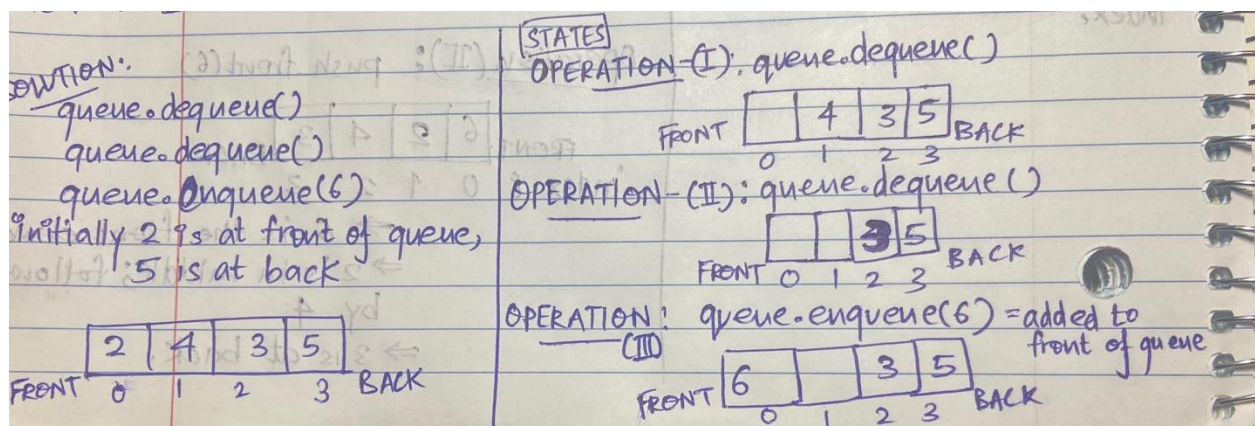 SOLUTION:
queue.dequeue()
queue.dequeue()
queue.enqueue(6)
initially 2 is at front of queue,
5 is at back
2 4 3 5
FRONT 0 1 2 3 BACK
STATES
OPERATION-(I): queue.dequeue()
4 3 5
FRONT BACK
0 1 2 3
OPERATION-(II): queue.dequeue()
3 5
FRONT 0 1 2 3 BACK
OPERATION: queue.enqueue(6) = added to
(III) front of queue
6 3 5
FRONT BACK
0 1 2 3